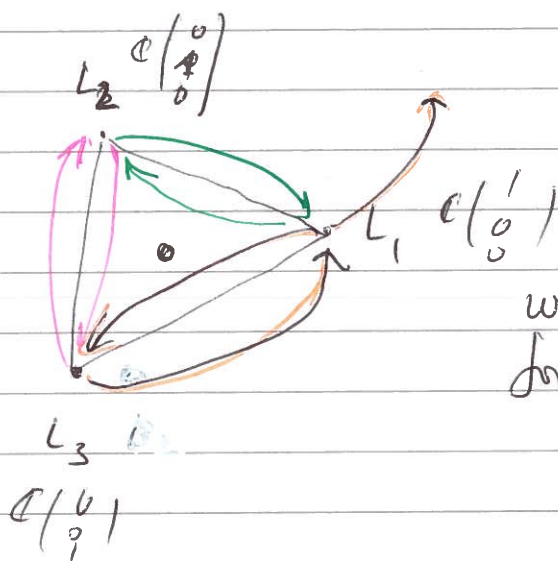 L₂ ℂ(0 1 0)
L₁ ℂ(1 0 0)
L₃
ℂ(0 0 1)